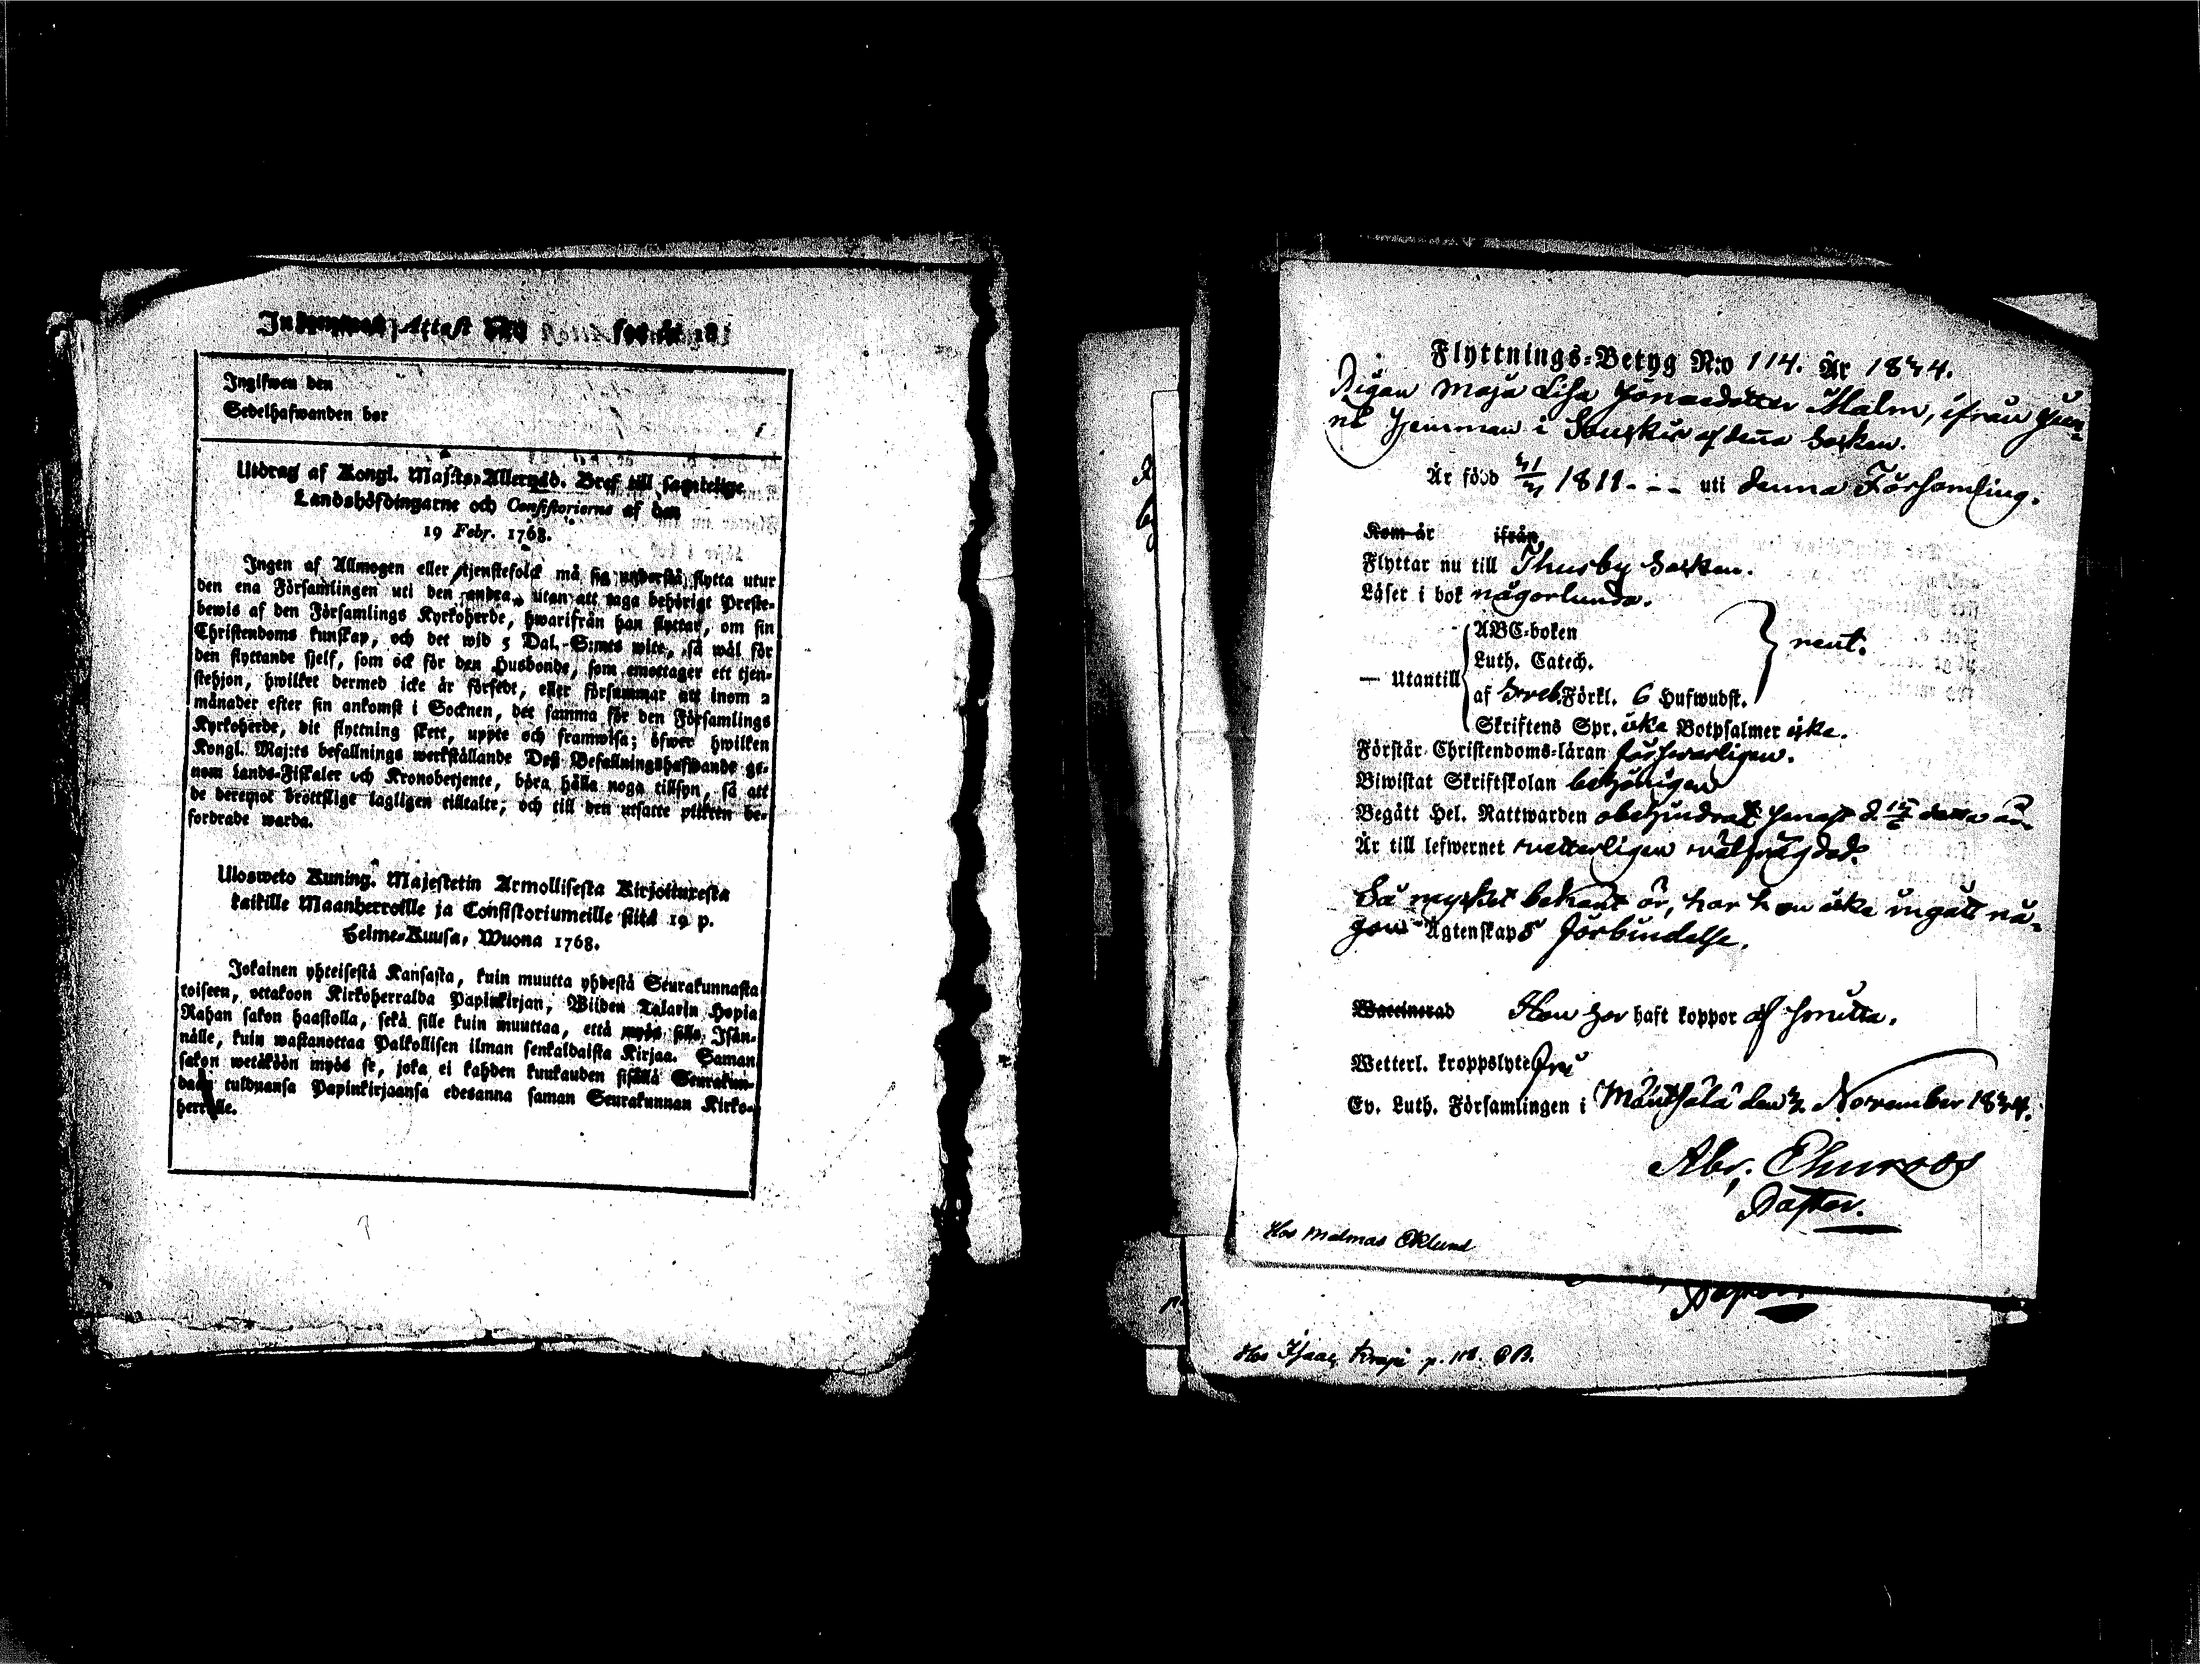 Inkommen Attest N:o för år 18
Inglfwen den
Sedelhafwanden bor
Utdrag af Kongl. Maj:ts Allernåd. Bref till samtelige
Landshöfdingarne och Consistorierne af den
19 Febr. 1768.
Ingen af Allmogen eller tjenstefolck må sig understå flytta utur
den ena Församlingen uti den andra, utan att taga behörigt Preste-
bewis af den Församlings Kyrkoherde, hwarifrån han flyttar, om sin
Christendoms kunskap, och det wid 5 Dal. S:mts wite, så wäl för
den flyttande sjelf, som ock för den Husbonde, som emottager ett tjen-
stehjon, hwilket dermed icke är försedt, eller försummar att inom 2
månader efter sin ankomst i Socknen, det samma för den Församlings
Kyrkoherde, dit flyttning skett, uppte och framwisa; öfwer hwilken
Kongl. Maj:ts befallnings werkställande Deß Befallningshafwande ge-
nom Lands-Fiskaler och Kronobetjente, böra hålla noga tillsyn, så att
de deremot bröttslige lagligen tilltalte, och till den utsatte plikten be-
fordrade warda.
Ulosweto Kuning. Majestetin Armollisesta Kirjoituxesta
kaikille Maanherroille ja Consistoriumeille siitä 19 p.
Helme-Kuusa, Wuona 1768.
Jokainen yhteisestä Kansasta, kuin muutta yhdestä Seurakunnasta
toiseen, ottakoon Kirkoherralda Papinkirjan, Wiiden Talarin Hopia
Rahan sakon haastolla, sekä sille kuin muuttaa, että myös sille Isän-
nälle, kuin wastanottaa Palkollisen ilman senkaldaista Kirjaa. Saman
sakon wetäköön myös se, joka ei kahden kuukauden sisällä Seurakun-
daan tulduansa Papinkirjaansa edesanna saman Seurakunnan Kirko-
herralle.
Flyttnings-Betyg N:o 114. År 1844.
Pigan Maja Lisa Jonaedotter Malm, ifrån
hemman i af denna Socken.
Är född 1811 - - - uti denna Församling.
Kom år ifrån
Flyttar nu till Thusby Socken.
Läser i bok någorlunda.
— Utantill
ABC-boken
Luth. Catech.
af Sveb. Förkl. 6 Hufwudst.
rent.
Skriftens Spr. icke Botpsalmer icke.
Förstår Christendoms-läran försvarligen.
Biwistat Skriftskolan behörigen
Begått Hel. Nattwarden obehindrad senast d. 15/6 detta år
Är till lefwernet vetterligen välfrägdad.
Så mycket bekant är, har hon icke ingått nå-
gon Ägtenskaps förbindelse.
Waccinerad Hon har haft koppor af smitta.
Wetterl. kroppslyte fri
Ev. Luth. Församlingen i Mäntsälä den November 1844.
Abr. Thuroos
Pastor.
Hos Malmas Eklund
Hos Isaac p. 118. C B.